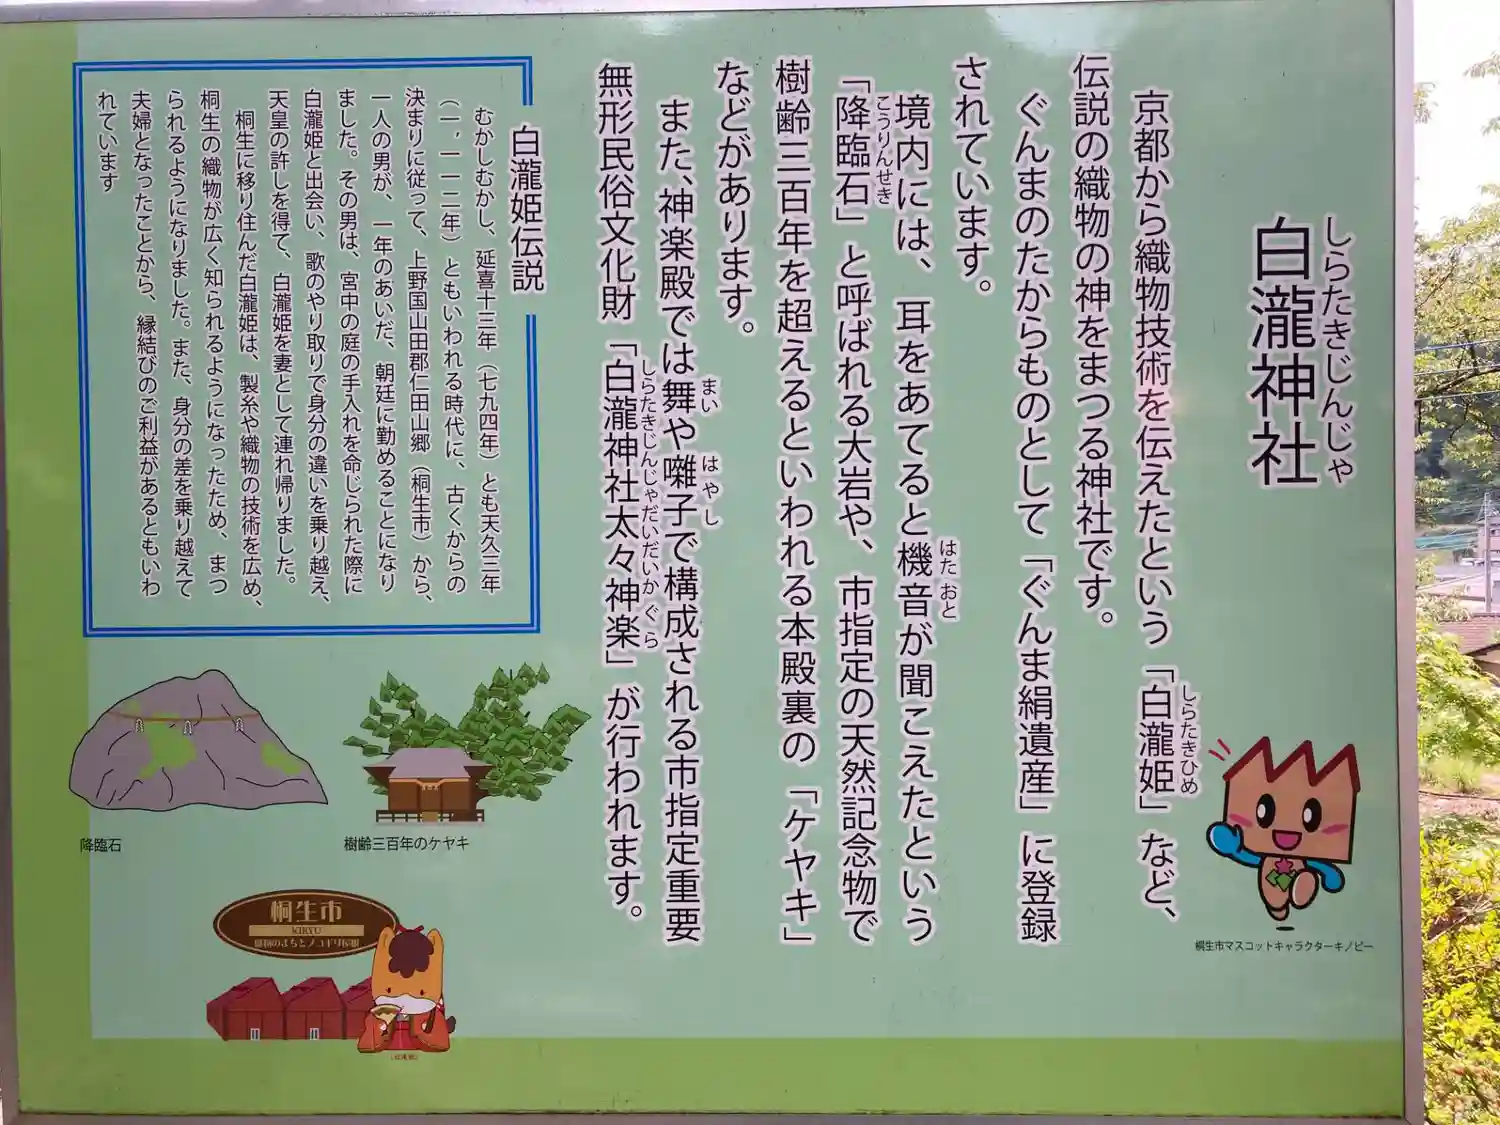 白瀧神社
しらたきじんじゃ
京都から織物技術を伝えたという「白瀧姫」など、
しらたきひめ
伝説の織物の神をまつる神社です。
ぐんまのたからものとして「ぐんま絹遺産」に登録
されています。
境内には、耳をあてると機音が聞こえたという
はたおと
「降臨石」と呼ばれる大岩や、市指定の天然記念物で
こうりんせき
樹齢三百年を超えるといわれる本殿裏の「ケヤキ」
などがあります。
また、神楽殿では舞や囃子で構成される市指定重要
まい はやし
無形民俗文化財「白瀧神社太々神楽」が行われます。
しらたきじんじゃだいだいかぐら
白瀧姫伝説
むかしむかし、延喜十三年（七九四年）とも天久三年
（一，一一二年）ともいわれる時代に、古くからの
決まりに従って、上野国山田郡仁田山郷（桐生市）から、
一人の男が、一年のあいだ、朝廷に勤めることになり
ました。その男は、宮中の庭の手入れを命じられた際に
白瀧姫と出会い、歌のやり取りで身分の違いを乗り越え、
天皇の許しを得て、白瀧姫を妻として連れ帰りました。
桐生に移り住んだ白瀧姫は、製糸や織物の技術を広め、
桐生の織物が広く知られるようになったため、まつ
られるようになりました。また、身分の差を乗り越えて
夫婦となったことから、縁結びのご利益があるともいわ
れています
降臨石
樹齢三百年のケヤキ
桐生市
KIRYU
織物のまちとノコギリ屋根
桐生市マスコットキャラクターキノピー